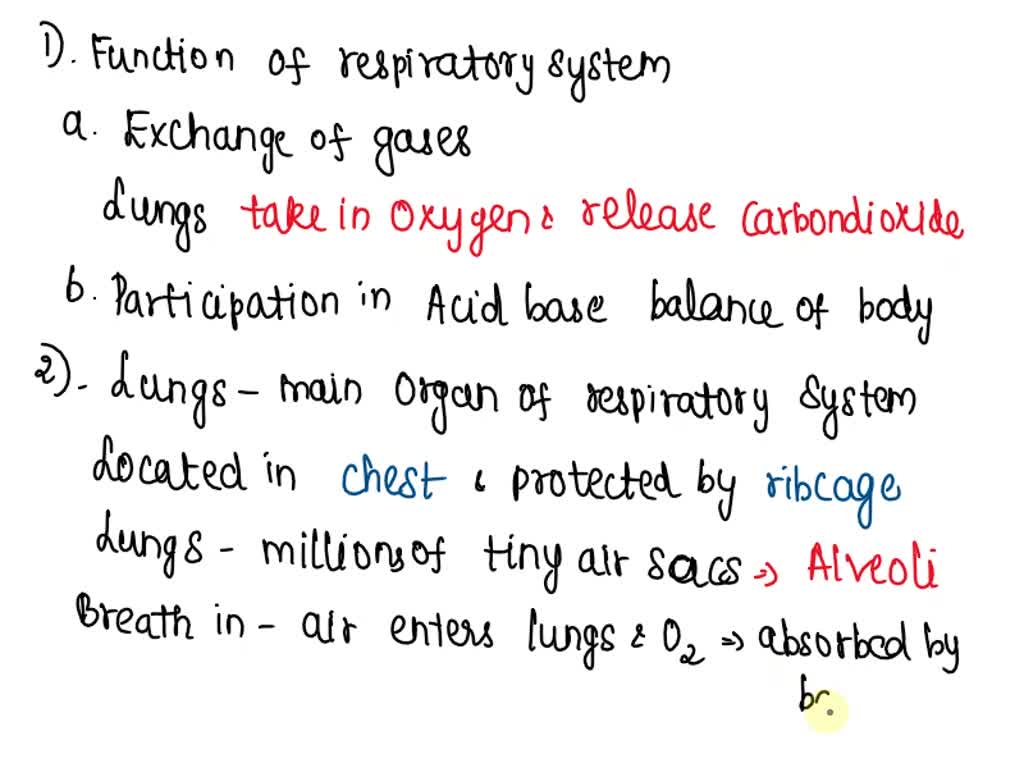 1). Function of respiratory system
a. Exchange of gases
Lungs take in Oxygen & release Carbondioxide
b. Participation in Acid base balance of body
2). Lungs - main Organ of respiratory System
Located in chest & protected by ribcage
Lungs - millions of tiny air sacs ⇒ Alveoli
Breath in - air enters lungs & O₂ ⇒ absorbed by